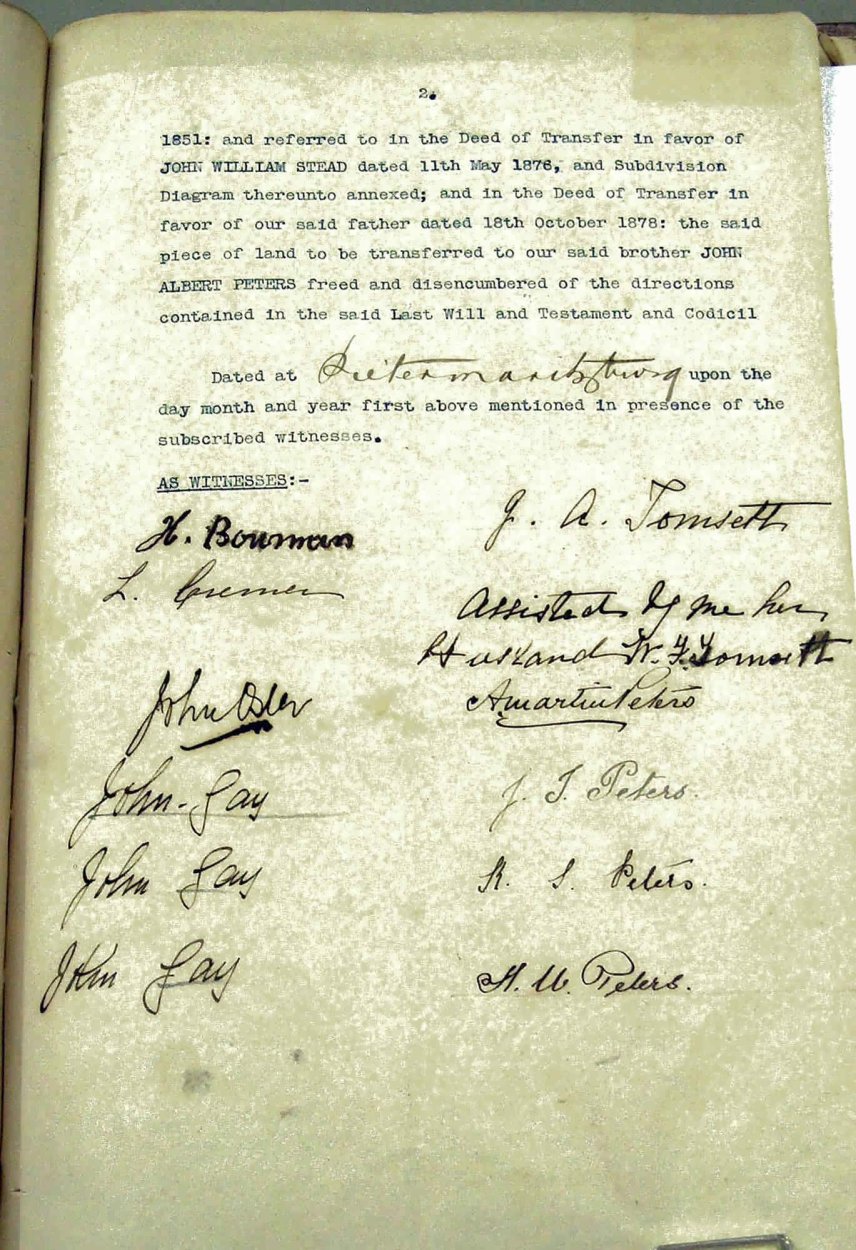 2.
1851: and referred to in the Deed of Transfer in favor of
JOHN WILLIAM STEAD dated 11th May 1876, and Subdivision
Diagram thereunto annexed; and in the Deed of Transfer in
favor of our said father dated 18th October 1878: the said
piece of land to be transferred to our said brother JOHN
ALBERT PETERS freed and disencumbered of the directions
contained in the said Last Will and Testament and Codicil
Dated at Pietermaritzburg upon the
day month and year first above mentioned in presence of the
subscribed witnesses.
AS WITNESSES:-
H. Bowman
J. A. Tomsett
L. Cremer
Assisted by me her
Husband W. F. Tomsett
John Osler
A Martin Peters
John Gay
J. T. Peters.
John Gay
R. S. Peters.
John Gay
H. W. Peters.